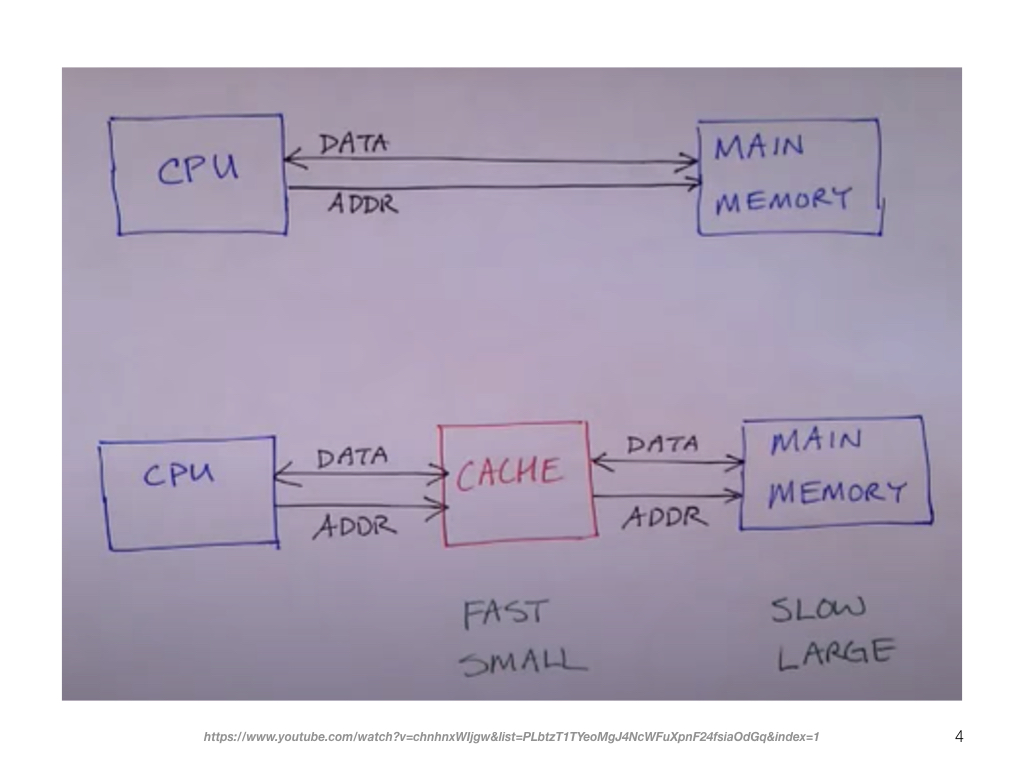 CPU
DATA
ADDR
MAIN
MEMORY
CPU
DATA
ADDR
CACHE
DATA
ADDR
MAIN
MEMORY
FAST
SMALL
SLOW
LARGE
https://www.youtube.com/watch?v=chnhnxWIjgw&list=PLbtzT1TYeoMgJ4NcWFuXpnF24fsiaOdGq&index=1
4